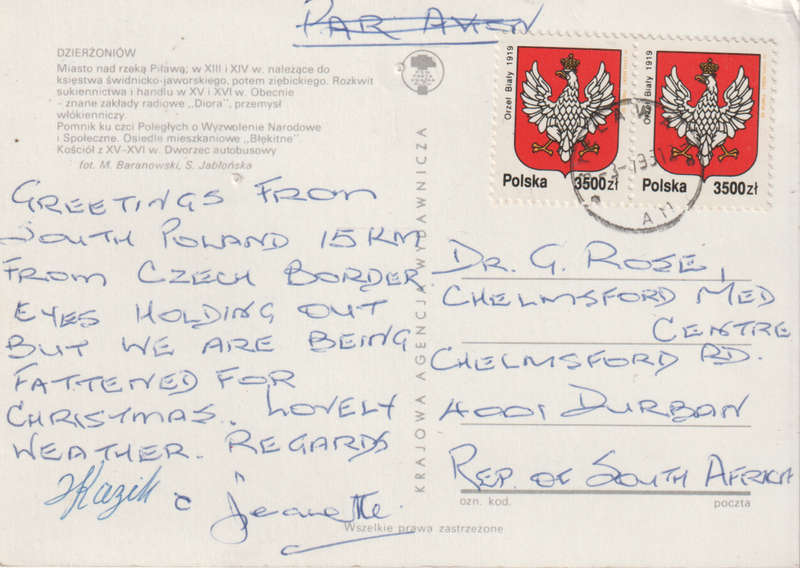 PAR AVION
DZIERŻONIÓW
Miasto nad rzeką Piławą; w XIII i XIV w. należące do
księstwa świdnicko-jaworskiego, potem ziębickiego. Rozkwit
sukiennictwa i handlu w XV i XVI w. Obecnie
- znane zakłady radiowe „Diora", przemysł
włókienniczy.
Pomnik ku czci Poległych o Wyzwolenie Narodowe
i Społeczne. Osiedle mieszkaniowe „Błękitne"
Kościół z XV-XVI w. Dworzec autobusowy
fot. M. Baranowski, S. Jabłońska
GREETINGS FROM
SOUTH POLAND 15 KM
FROM CZECH BORDER
EYES HOLDING OUT
BUT WE ARE BEING
FATTENED FOR
CHRISTMAS. LOVELY
WEATHER. REGARDS
Kazik
Jeanette
KRAJOWA AGENCJA WYDAWNICZA
Orzeł Biały 1919
Polska 3500zł
Orzeł Biały 1919
Polska 3500zł
DR. G. ROSE,
CHELMSFORD MED
CENTRE
CHELMSFORD RD.
4001 DURBAN
REP. OF SOUTH AFRICA
ozn. kod. poczta
Wszelkie prawa zastrzeżone